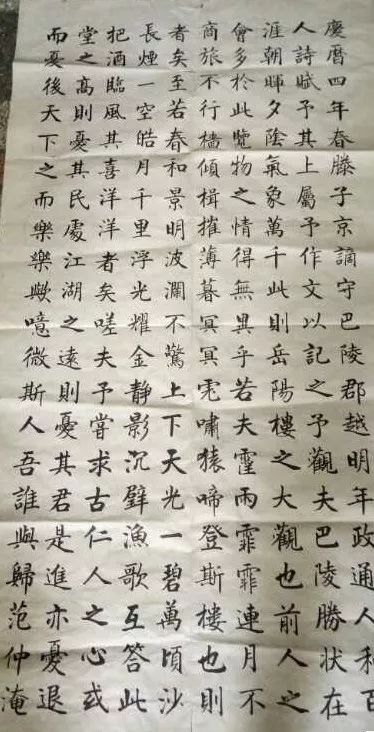 慶曆四年春滕子京謫守巴陵郡越明年政通人和百
人詩賦予其上屬予作文以記之予觀夫巴陵勝狀在
涯朝暉夕陰氣象萬千此則岳陽樓之大觀也前人之
會多於此覽物之情得無異乎若夫霪雨霏霏連月不
商旅不行檣傾楫摧薄暮冥冥虎嘯猿啼登斯樓也則
者矣至若春和景明波瀾不驚上下天光一碧萬頃沙
長煙一空皓月千里浮光耀金靜影沉璧漁歌互答此
把酒臨風其喜洋洋者矣嗟夫予嘗求古仁人之心或
堂之高則憂其民處江湖之遠則憂其君是進亦憂退
而憂後天下之而樂樂歟噫微斯人吾誰與歸范仲淹